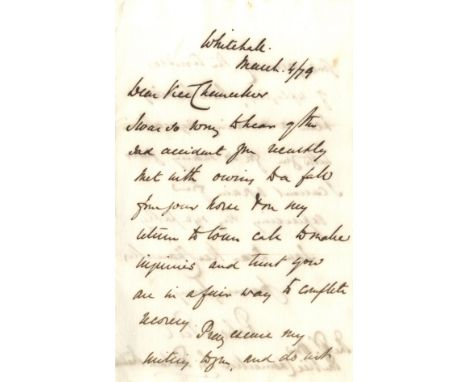 Whitehall.
March. 4/79
Dear Vice Chancellor
I was so sorry to hear of the
sad accident you recently
met with owing to a fall
from your horse & on my
return to town call to make
inquiries and trust you
are in a fair way to complete
recovery Pray excuse my
writing to you, and do not